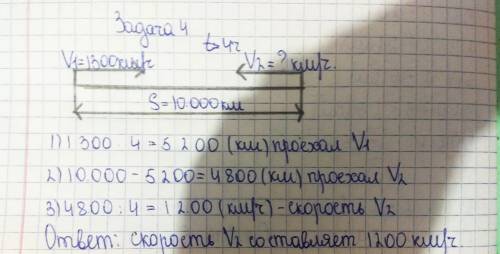 Задача 4
t=4ч
V1=1300км/ч V2=? км/ч.
S=10.000км
1) 1 300 · 4 = 5 200 (км) проехал V1
2) 10.000 - 5200 = 4800 (км) проехал V2
3) 4800 : 4 = 1200 (км/ч) - скорость V2
Ответ: скорость V2 составляет 1200 км/ч.